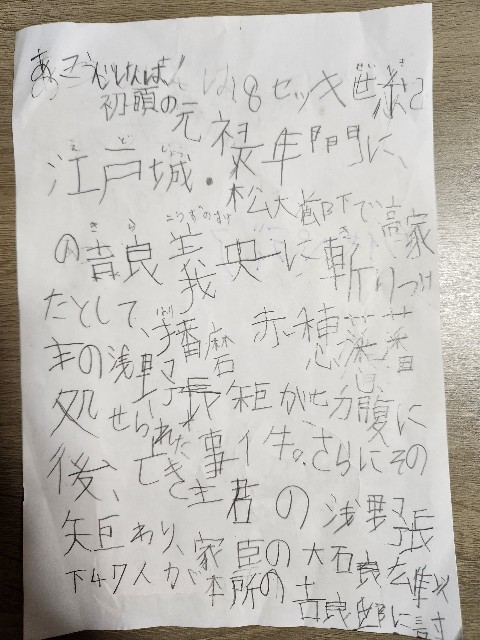 は18セッキ世紀
初頭の元禄年間に、
えどじょう
江戸城・松大廊下で高家
きら こうずのすけ き
の吉良義央に斬りつけ
はり
たとして、播磨赤穂藩藩
主の浅野長矩が切腹に
処せられた事件。さらにその
後、亡き主君の浅野張
矩わり、家臣の大石良雄以
下47人が本所の吉良邸に討